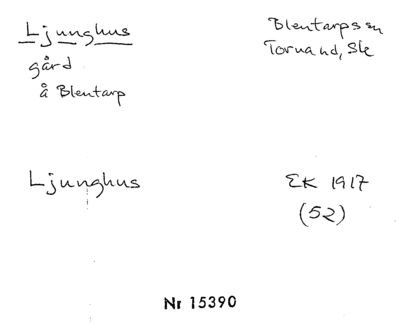 Ljunghus
gård
å Blentarp
Blentarps sn
Torna hd, Sk
Ljunghus
EK 1917
(52)
Nr 15390